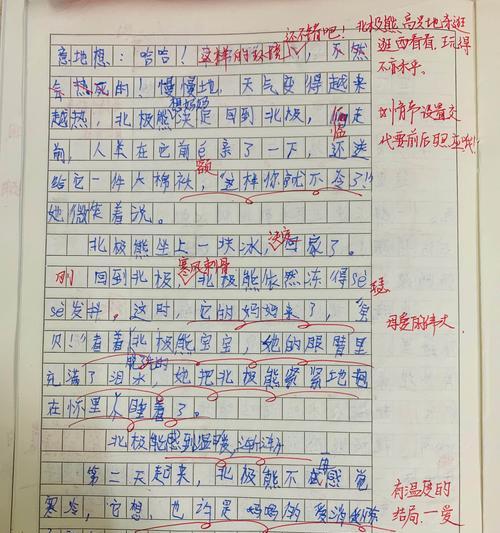 还不错吧！北极熊高兴地东逛
逛西看看，玩得
不亦乐乎。
意地想：哈哈！这样的环境，不然
会热死的！慢慢地，天气变得越来
想妈妈
越热，北极熊决定回到北极，临走
前，人类在它前额亲了一下，还送
给它一件大棉袄，“这样你就不冷了！”
她微笑着说。
情节设置交
代要前后照应哦！
北极熊坐上一块冰，回家了。
决定
寒风刺骨
刚回到北极，北极熊依然冻得sè
瑟
sè发抖。这时，它的妈妈来了，“宝
贝！”看着北极熊宝宝，她的眼睛里
充满了泪水，她把北极熊紧紧地抱
在怀里，睡着了。
母爱的伟大
北极熊感到温暖，渐渐
第二天起来，北极熊不再感觉
寒冷，它想，也许是妈妈的爱消除
有温度的
结局—爱